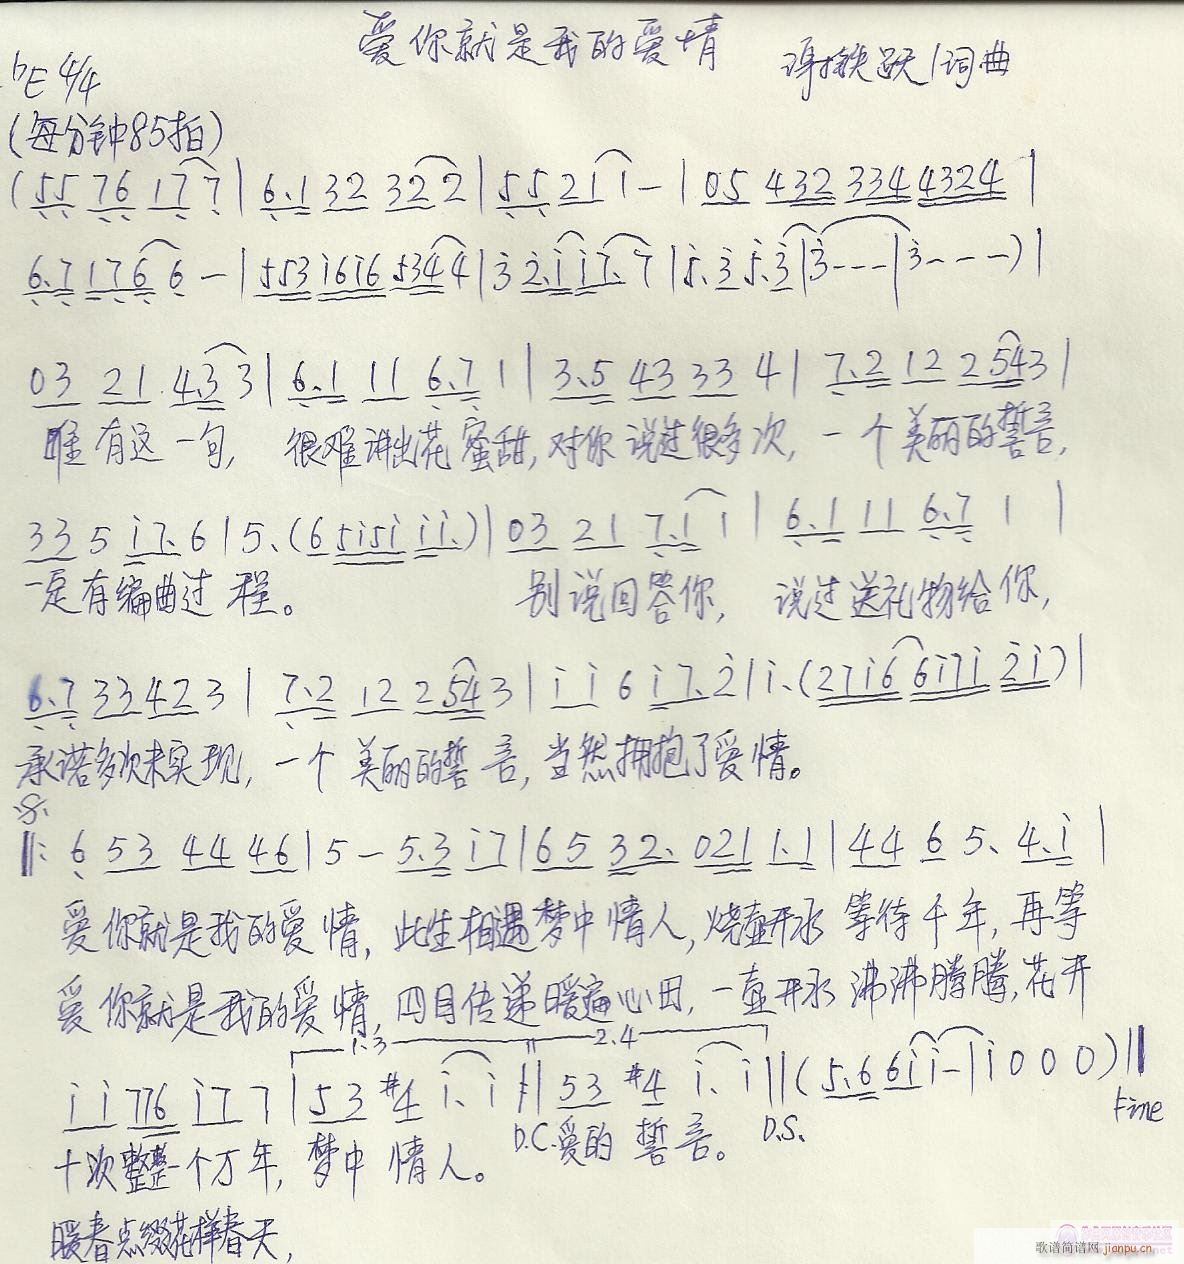 爱你就是我的爱情
谭铁跃/词曲
♭E 4/4
(每分钟85拍)
(55 76 177|6.1 32 322|55 21i-|05 432 334 4324|
6.7 176 6-|553 i6i6 5344|3 2.i i7.7|5.3 5.3|3---|3---)|
03 21 433|6.1 11 6.7 1|3.5 43 33 4|7.2 12 2543|
唯有这一句, 很难讲出花蜜甜,对你说过很多次, 一个美丽的誓言,
33 5 i7.6|5.(6 5i5i ii.)|03 21 7.1 1|6.1 11 6.7 1 1|
一定有编曲过程。 别说回答你, 说过送礼物给你,
6.7 33 42 3|7.2 12 2543|i i 6 i7.2|i.(27i6 6i7i 2i)|
承诺多次未实现, 一个美丽的誓言,当然拥抱了爱情。
‖: 6 53 44 46|5-5.3 i7|65 32. 021 1.1|44 6 5. 4.i|
爱你就是我的爱情, 此生相遇梦中情人,烧壶开水等待千年,再等
爱你就是我的爱情,四目传递暖遍心田,一壶开水沸沸腾腾,花开
1.3 2.4
i i 776 i7 7|53 #4 i. i:‖ 53 #4 i. i‖(5.6 6ii-|i 0 0 0)‖
Fine
十次整整一个万年, 梦中情人。 D.C.爱的誓言。 D.S.
暖春点缀花样春天,
歌谱简谱网 jianpu.cn